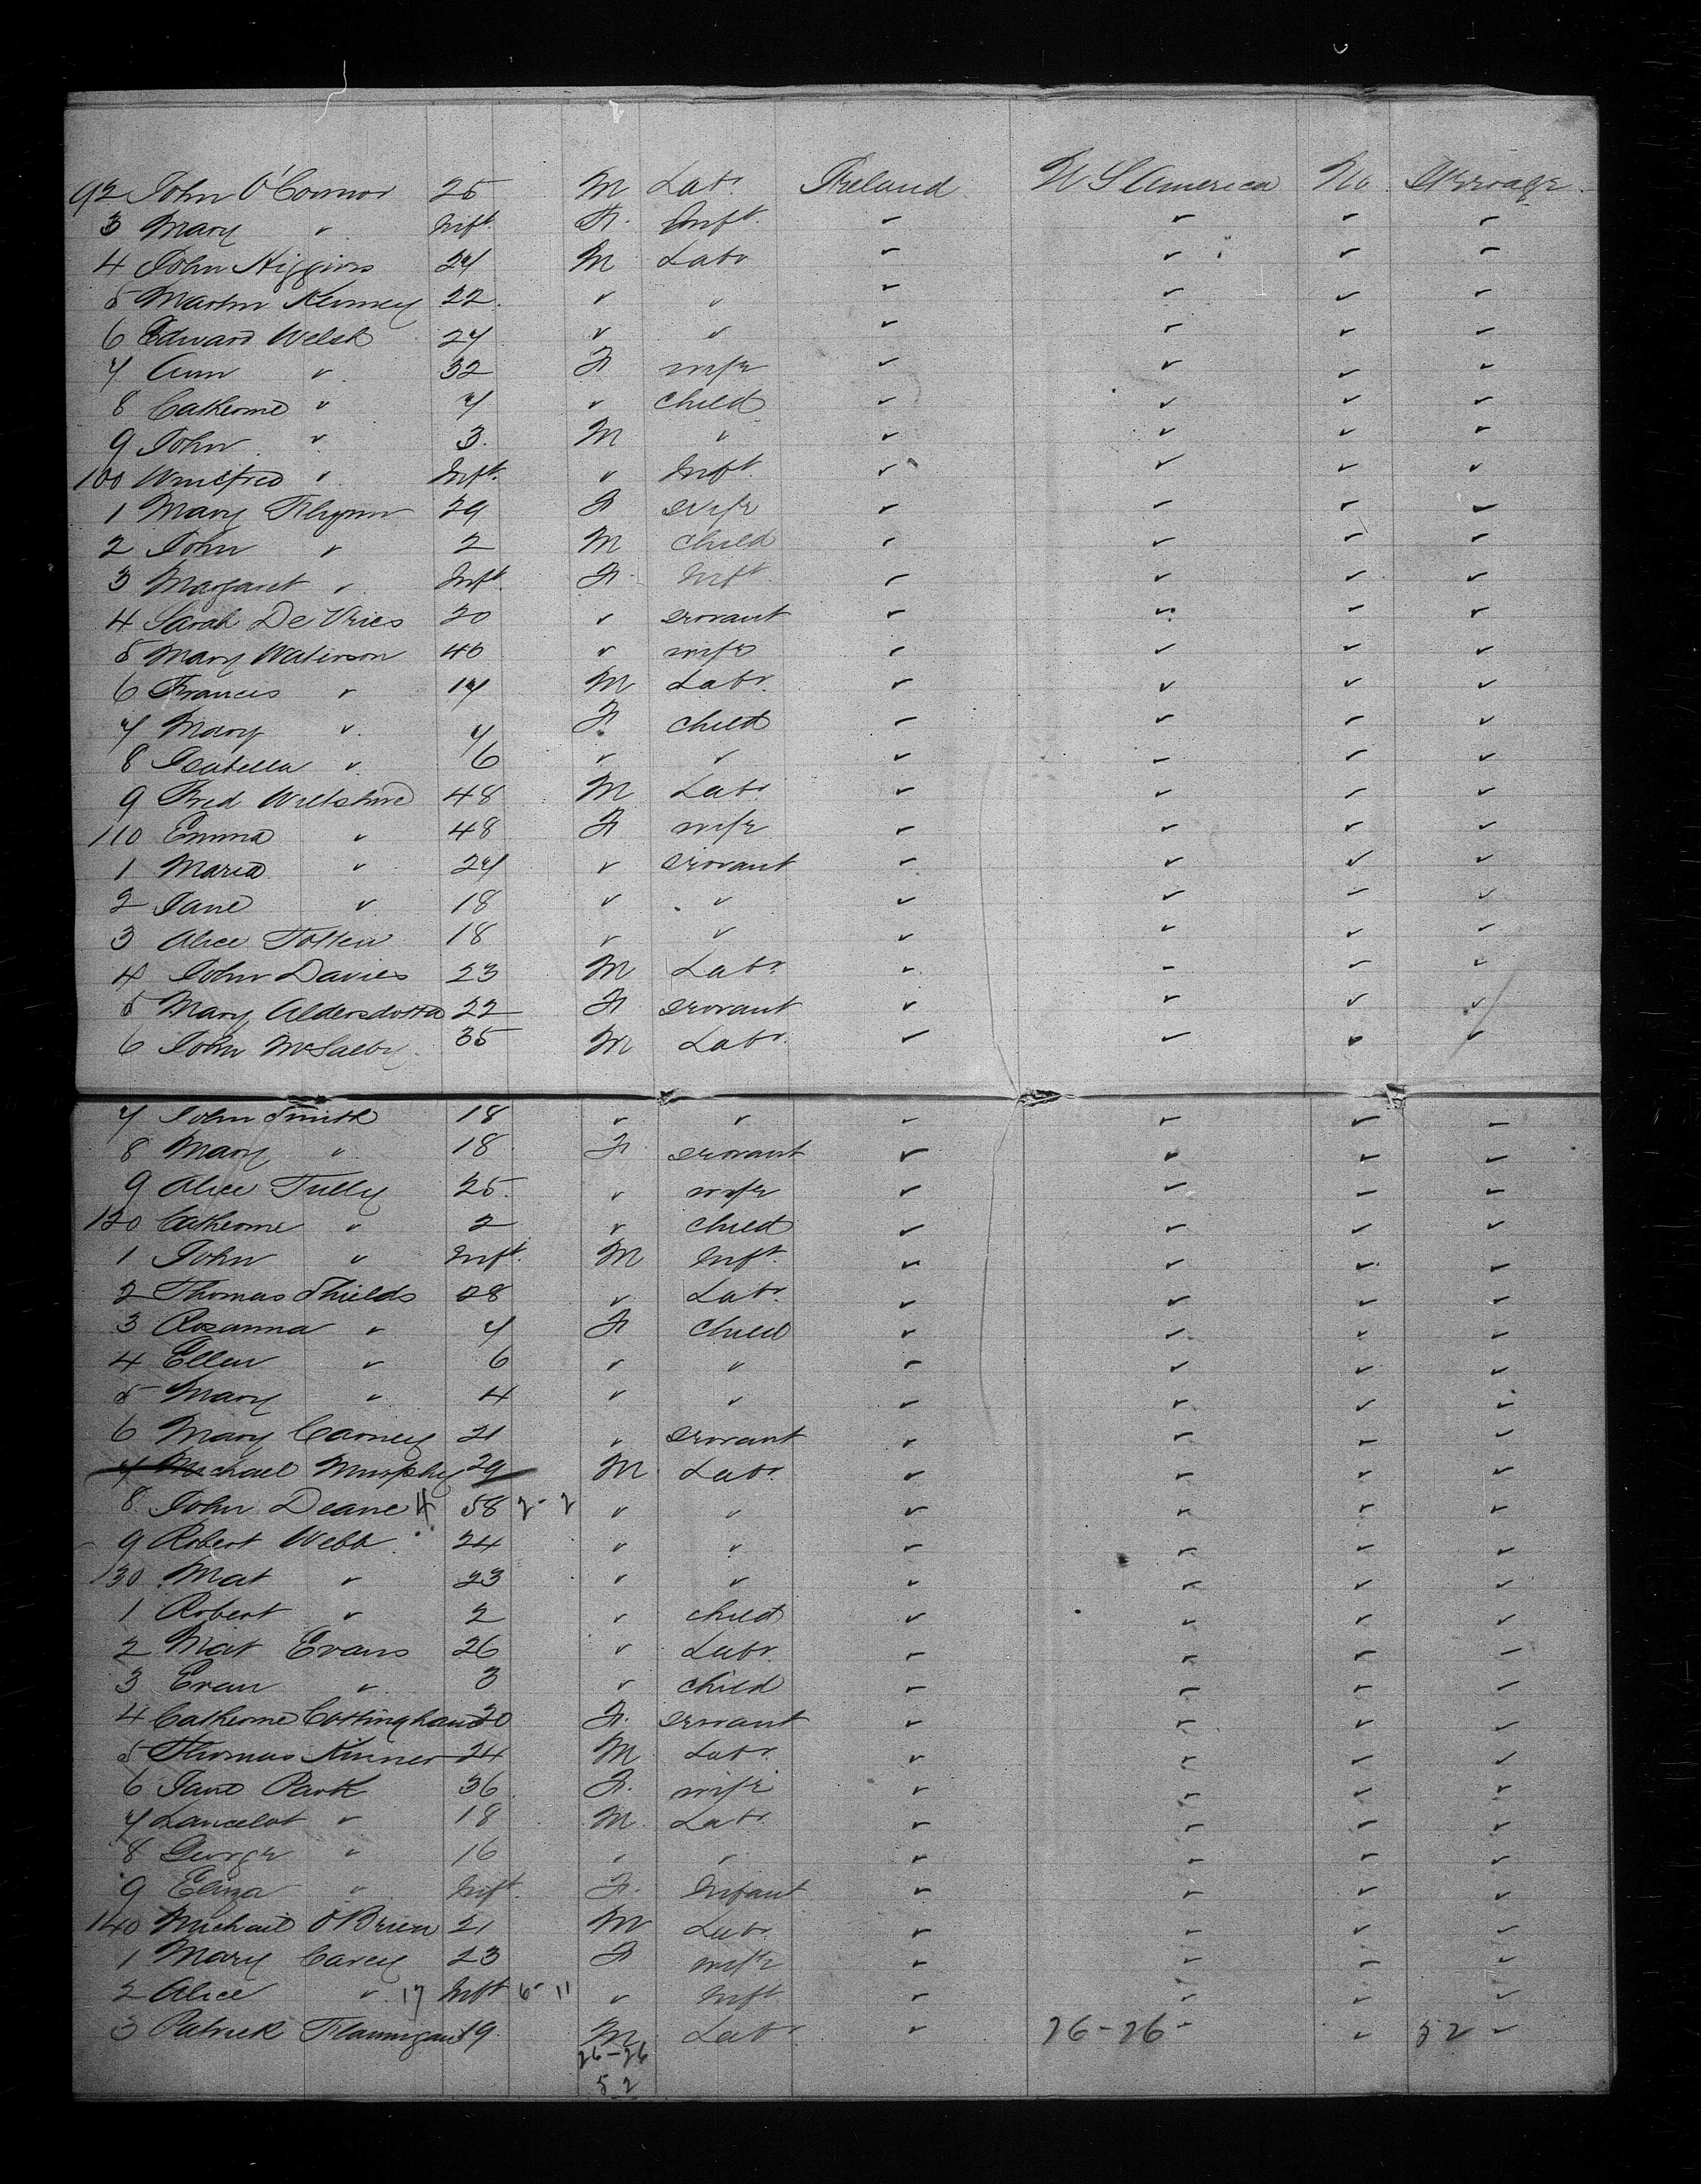 92 John O'Connor 25 M Labr Ireland U S America No Steerage
3 Mary " Inft. F. Inft. " " " "
4 John Higgins 27 M Labr " " " "
5 Martin Kenney 22. " " " " " "
6 Edward Welsh 27 " " " " " "
7 Ann " 32 F wife " " " "
8 Catherine " 7 " child " " " "
9 John " 3. M " " " " "
100 Winifred " Inft. " Inft. " " " "
1 Mary Flynn 29 F wife " " " "
2 John " 2 M child " " " "
3 Margaret " Inft. F. Inft. " " " "
4 Sarah De Vries 20 " servant " " " "
5 Mary Waterson 40 " wife " " " "
6 Francis " 17 M Labr. " " " "
7 Mary " 7 F child " " " "
8 Isabella " 6 " " " " " "
9 Fred Wiltshire 48 M Labr. " " " "
110 Emma " 48 F wife " " " "
1 Maria " 27 " servant " " " "
2 Jane " 18 " " " " " "
3 Alice Totten 18 " " " " " "
4 John Davies 23 M Labr. " " " "
5 Mary Aldersdotta 22 F. servant " " " "
6 John 35 M Labr. " " " "
7 John Smith 18 " " " " " "
8 Mary " 18 F. servant " " " "
9 Alice Tully 25. " wife " " " "
120 Catherine " 2 " child " " " "
1 John " Inft. M Inft. " " " "
2 Thomas Shields 28 " Labr. " " " "
3 Rosanna " 7 F child " " " "
4 Ellen " 6 " " " " " "
5 Mary " 4 " " " " " "
6 Mary Carney 21 " servant " " " "
7 Michael Murphy 29 M Labr. " " " "
8 John Deane 4 58 2 - 2 " " " " " "
9 Robert Webb 24 " " " " " "
130 Mat " 23 " " " " " "
1 Robert " 2 " child " " " "
2 Mat Evans 26 " Labr. " " " "
3 Evan " 3 " child " " " "
4 Catherine Cottingham 20 F. servant " " " "
5 Thomas Kinner 24 M Labr. " " " "
6 Jane Park 36 F. wife " " " "
7 Lancelot " 18 M. Labr. " " " "
8 George " 16 " " " " " "
9 Eliza " Inft. F. Infant " " " "
140 Michael O'Brien 21 M Labr. " " " "
1 Mary Carey 23 F wife " " " "
2 Alice " 17 Inft 6 - 11 " Inft " " " "
3 Patrick Flannigan 19. M Labr. " 26-26 " " 52 "
26-26
52